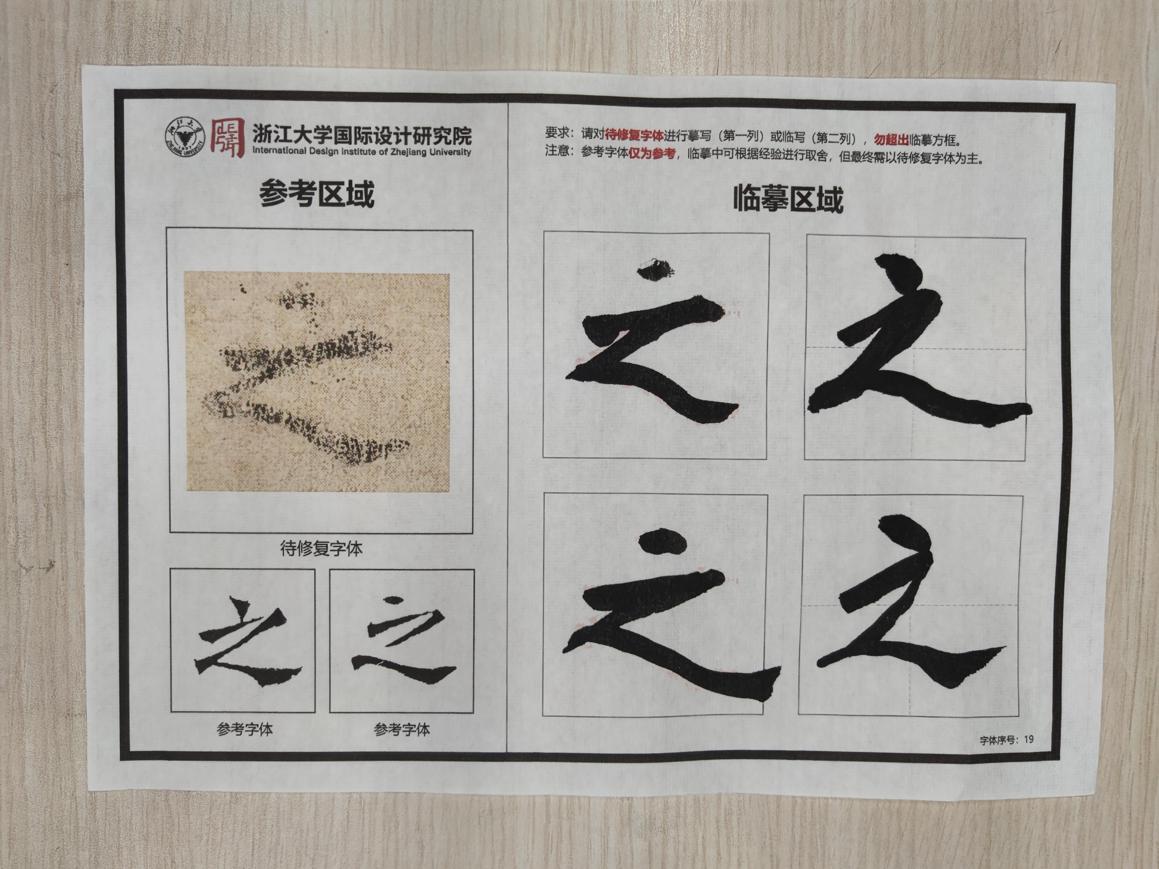 浙江大学国际设计研究院
International Design Institute of Zhejiang University
参考区域
之
待修复字体
之 之
参考字体 参考字体
要求：请对待修复字体进行摹写（第一列）或临写（第二列），勿超出临摹方框。
注意：参考字体仅为参考，临摹中可根据经验进行取舍，但最终需以待修复字体为主。
临摹区域
之 之
之 之
字体序号：19